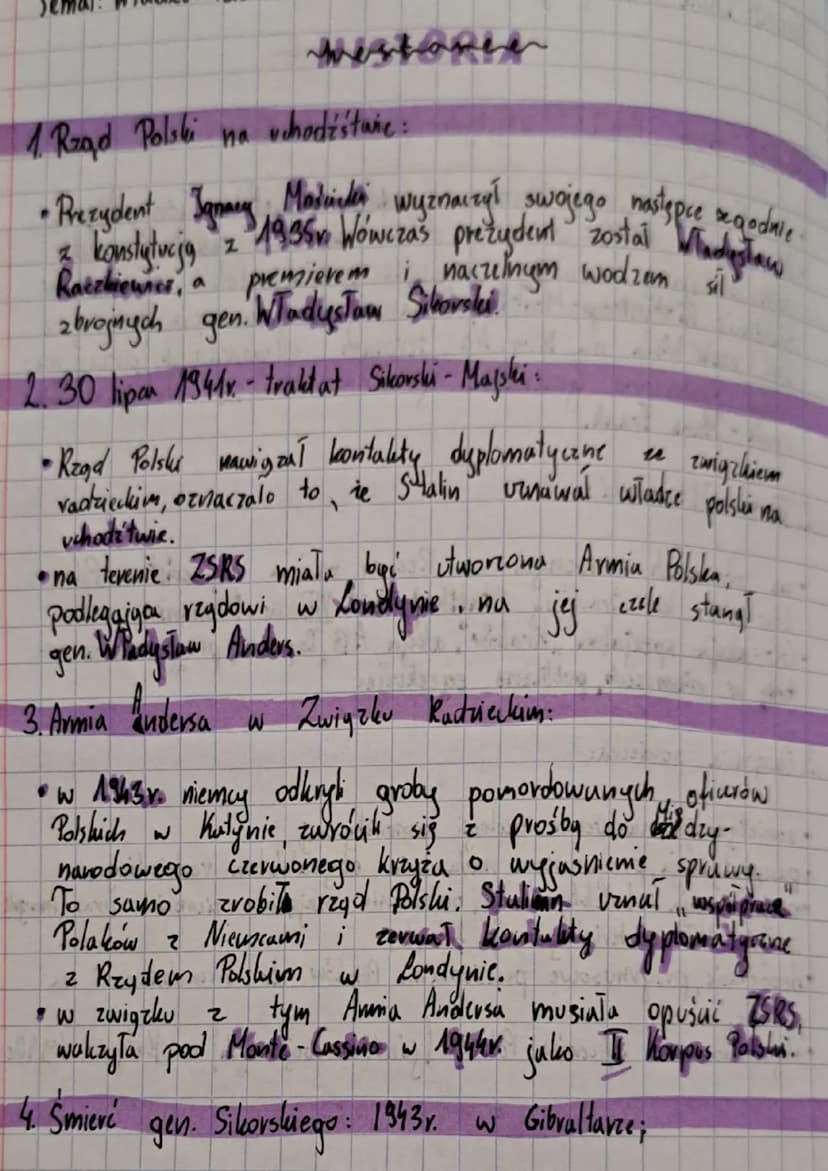 Temat:
HISTORIA
1. Rząd Polski na uchodźśtwie:
• Prezydent Ignacy Mościcki wyznaczył swojego następce zgodnie
z konstytucją z 1935r. Wówczas prezydent został Władysław
Raczkiewicz, a premierem i naczelnym wodzem sił
zbrojnych gen. Władysław Sikorski.
2. 30 lipca 1941r. - traktat Sikorski - Majski:
• Rząd Polski nawiązał kontakty dyplomatyczne ze związkiem
radzieckim, oznaczało to, że Stalin uznawał władze polski na
uchodźtwie.
• na terenie ZSRS miała być utworzona Armia Polska,
podlegająca rządowi w Londynie, na jej czele stanął
gen. Władysław Anders.
3. Armia Andersa w Związku Radzieckim:
• w 1943r. niemcy odkryli groby pomordowanych oficerów
Polskich w Katynie, zwrócili się z prośbą do Między-
narodowego czerwonego krzyża o wyjaśnienie sprawy.
To samo zrobił rząd Polski. Stalin uznał „współprace"
Polaków z Niemcami i zerwał kontakty dyplomatyczne
z Rządem Polskim w Londynie.
• w związku z tym Armia Andersa musiała opuścić ZSRS,
walczyła pod Monte-Cassino w 1944r. jako II Korpus Polski.
4. Śmierć gen. Sikorskiego: 1943r. w Gibraltarze;